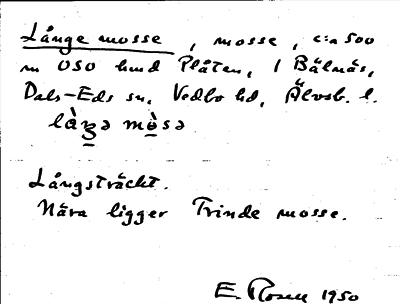 Långe mosse, mosse, c:a 500
m OSO hmd Plåten, / Bälnäs,
Dals-Eds sn, Vedbo hd, Älvsb. l.
là̀ŋə mòsə
Långsträckt.
Nära ligger Trinde mosse.
E. Rosell 1950